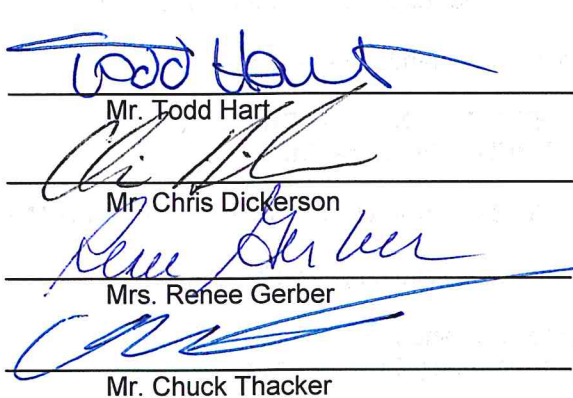 Todd Hart
Mr. Todd Hart
Mr. Chris Dickerson
Renee Gerber
Mrs. Renee Gerber
Mr. Chuck Thacker